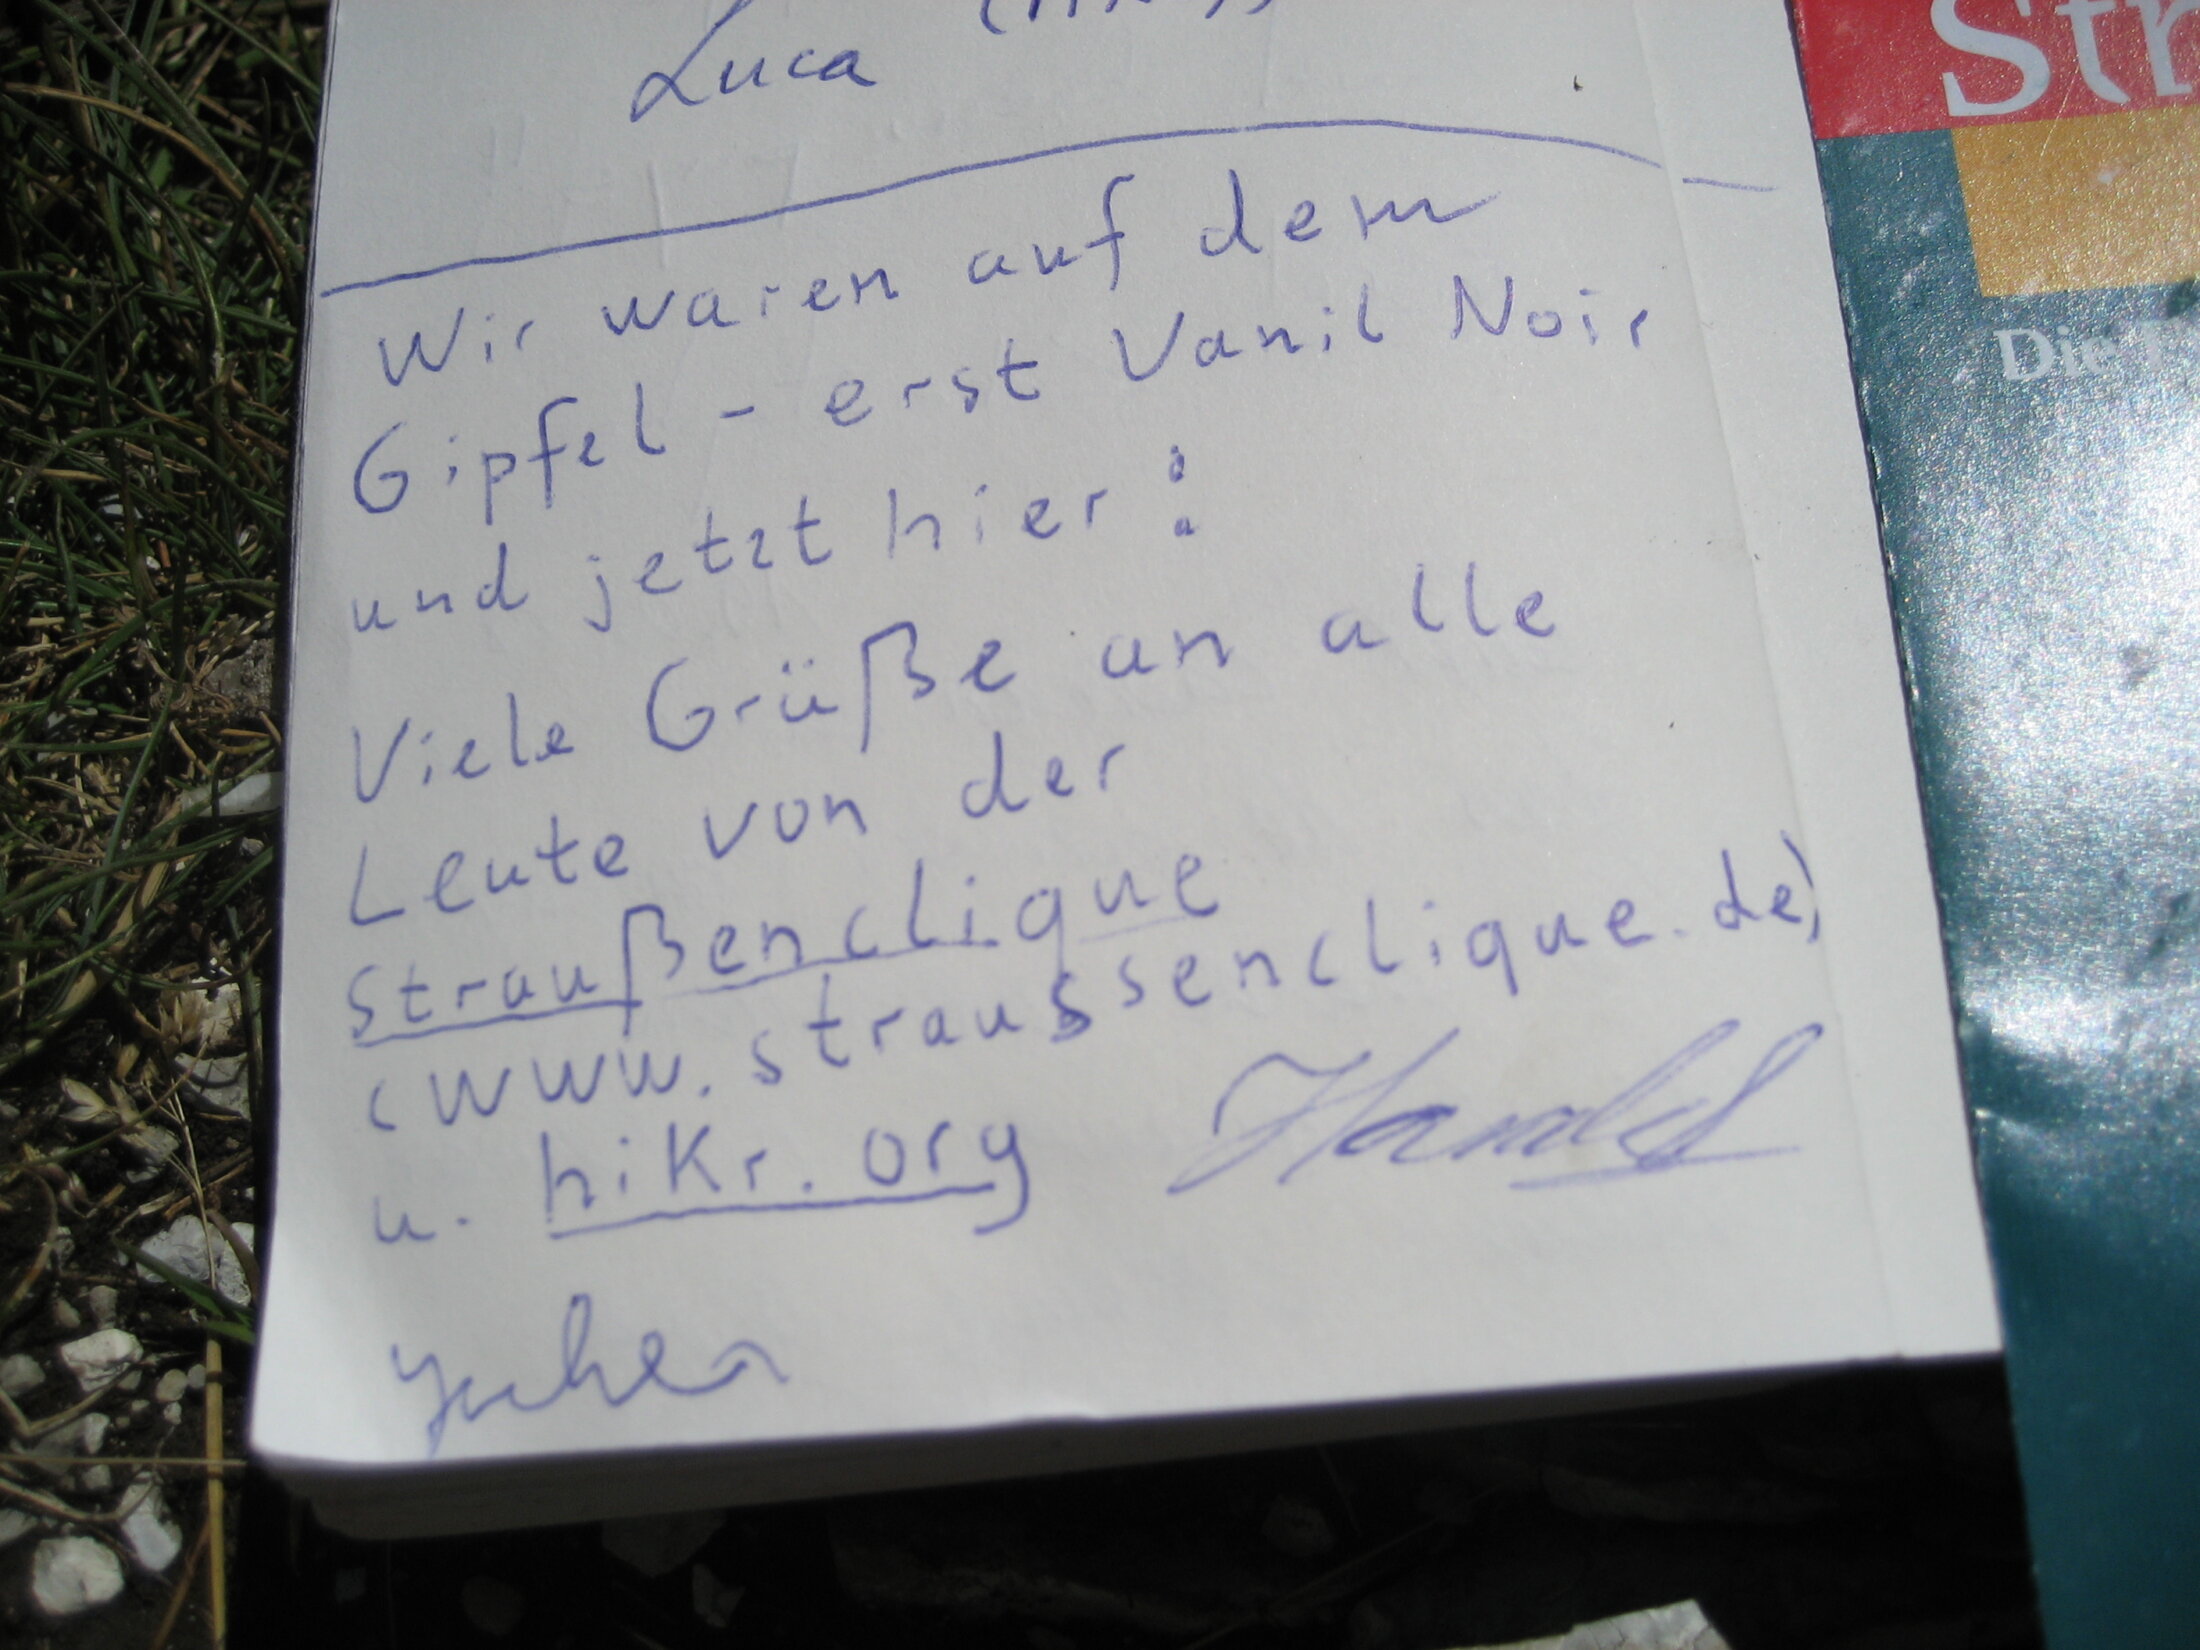 Luca
Wir waren auf dem
Gipfel - erst Vanil Noir
und jetzt hier :
Viele Grüße an alle
Leute von der
Straußenclique
(www.straussenclique.de)
u. hikr.org Harald
Jochen
Str
Die